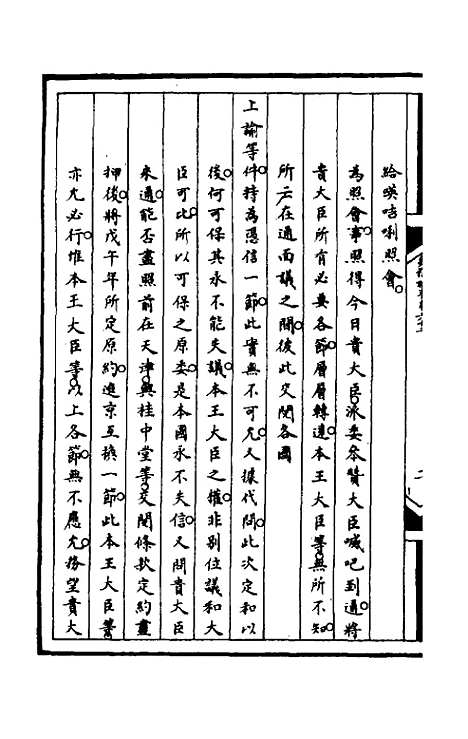 給𠸄咭唎照會
為照會事照得今日貴大臣派委叅贊大臣喊吧到通將
貴大臣所有必要各節層層轉達本王大臣等無所不知
所云在通而議之間彼此交閱各國
上諭等件持為憑信一節此實無不可允又據伐問此次定和以
後何可保其永不能失議本王大臣之權非別位議和大
臣可比所以可保之原委是本國永不失信又問貴大臣
來通能否盡照前在天津與桂中堂等交閱條款定約畫
押後將戊午年所定原約進京互換一節此本王大臣等
亦允必行惟本王大臣等以上各節無不應允務望貴大